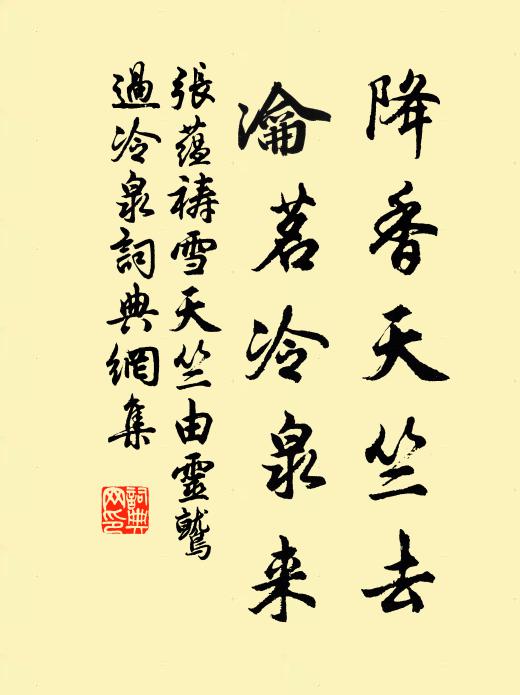 降香天竺去
瀹茗冷泉来
張藴禱雪天竺由靈鷲
過冷泉詞典網集
詞典
网印